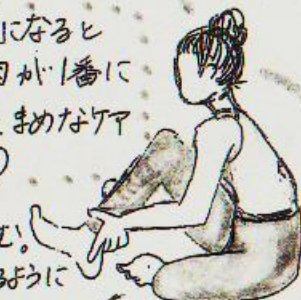 になると
が1番に
まめなケア
む。
るように